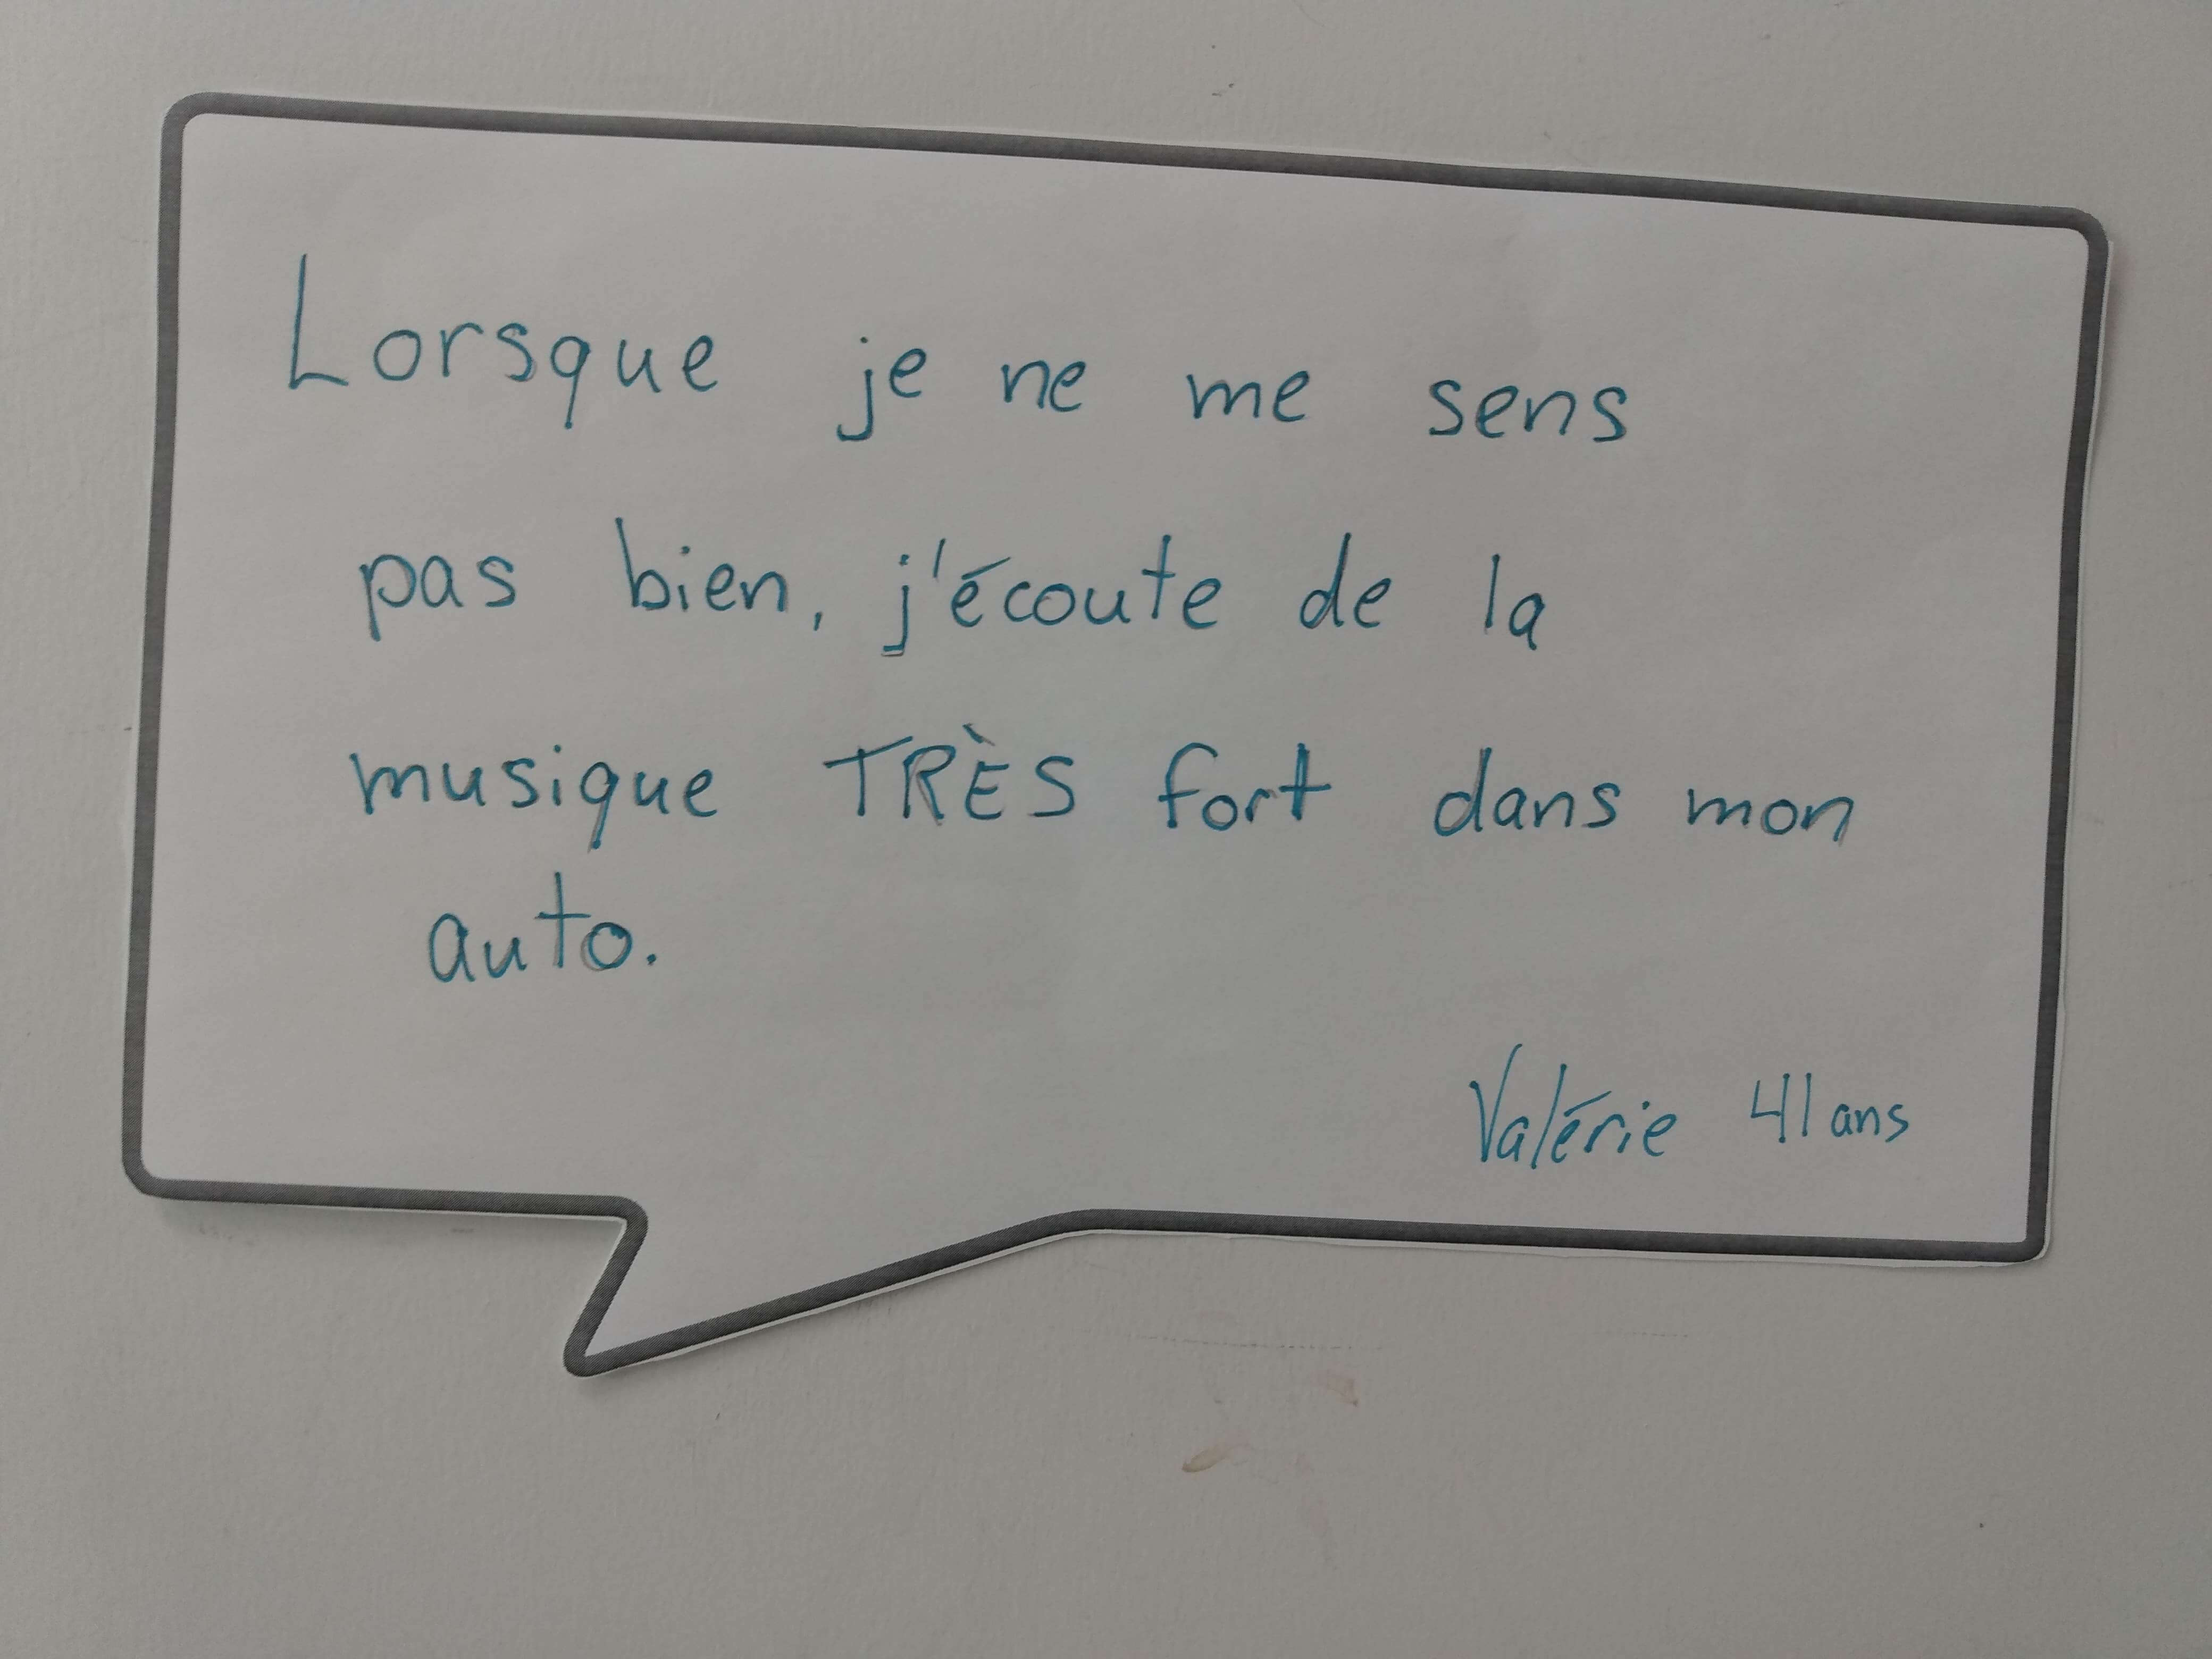 Lorsque je ne me sens
pas bien, j'écoute de la
musique TRÈS fort dans mon
auto.
Valérie 41 ans